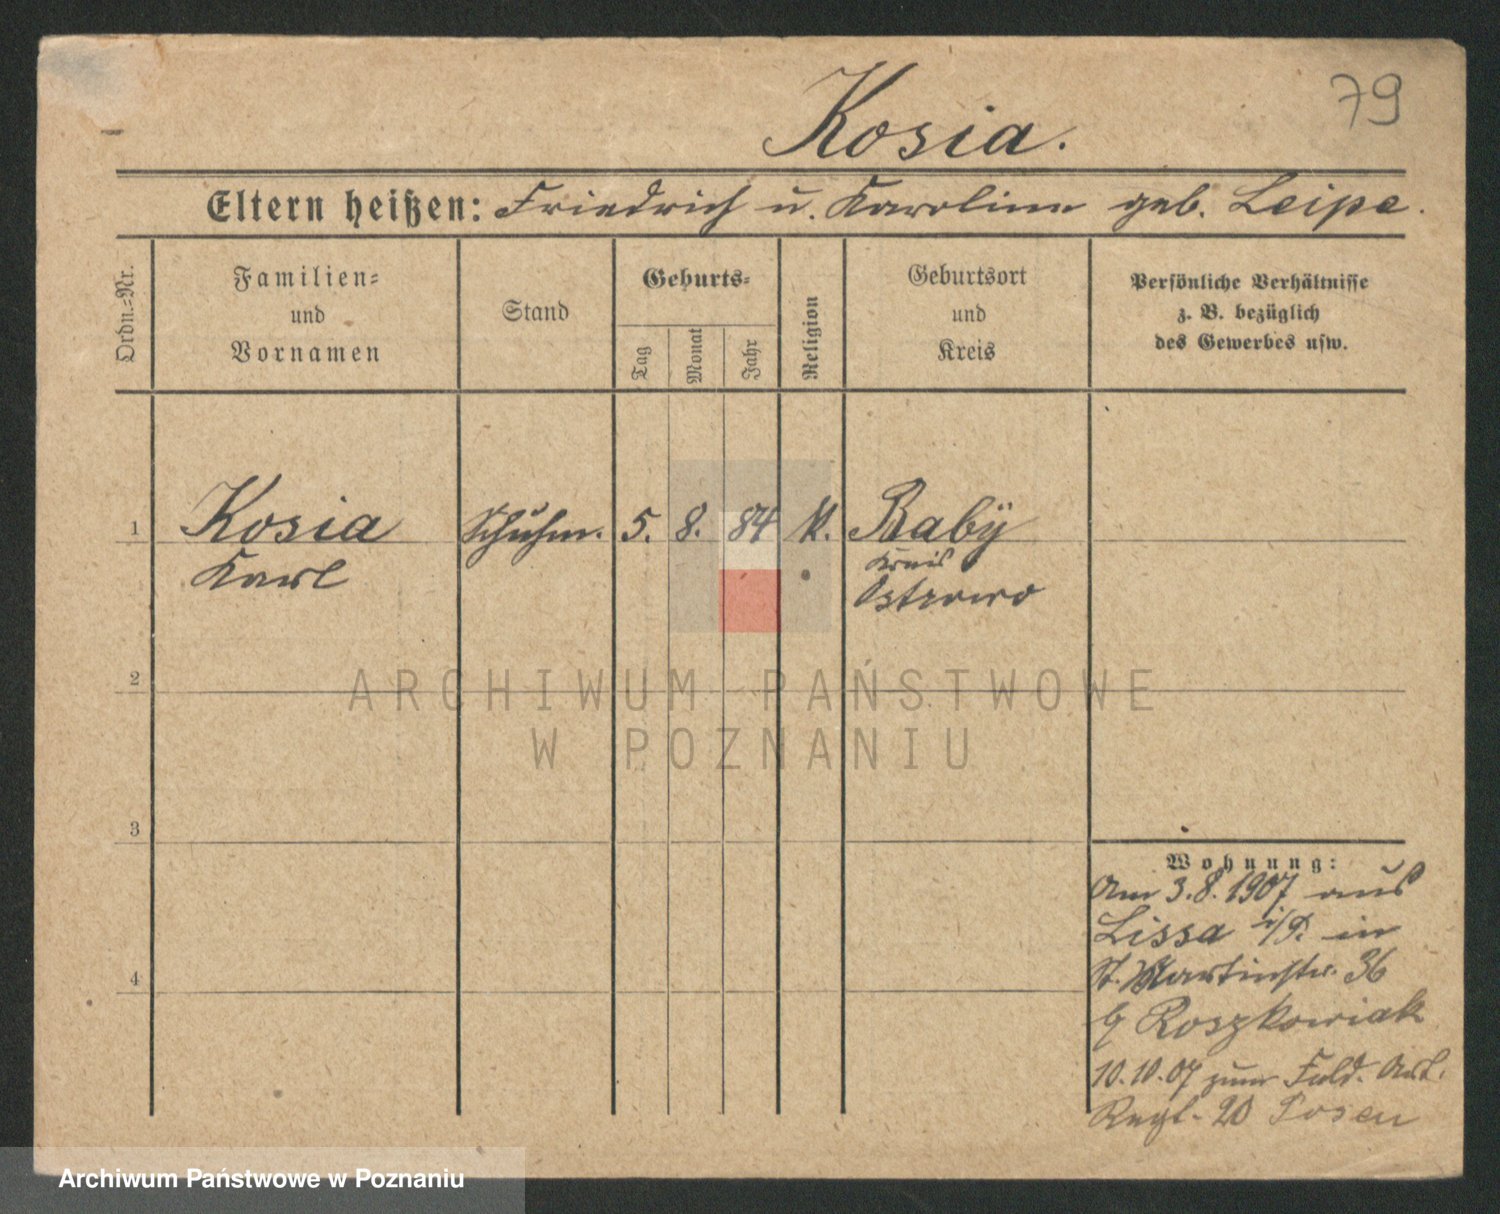 79
Kosia.
Eltern heißen: Friedrich u. Karoline geb. Leipe.
Ordn.-Nr.
Familien-
und
Vornamen
Stand
Geburts-
Tag
Monat
Jahr
Religion
Geburtsort
und
Kreis
Persönliche Verhältnisse
z. B. bezüglich
des Gewerbes usw.
1 Kosia Schuhm. 5. 8. 84 k. Baby
Karl Kreis
Ostrowo
2
ARCHIWUM PAŃSTWOWE
W POZNANIU
3
Wohnung:
Am 3.8.1907 aus
Lissa i/P. in
St. Martinstr. 36
b/ Roszkowiak
4
10.10.07 zum Feld. Art.
Regt. 20 Posen
Archiwum Państwowe w Poznaniu